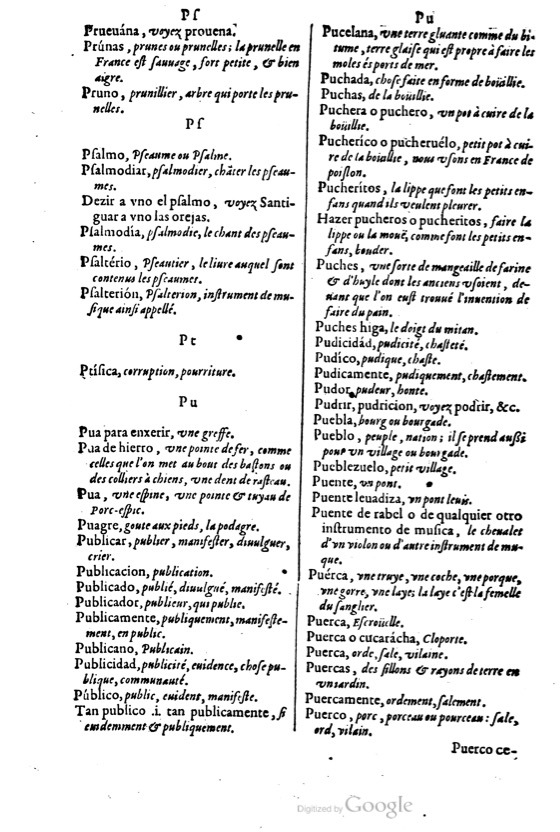 Pſ
Prueuána, voyez prouena.
Prúnas, prunes ou prunelles; la prunelle en
France est sauuage, fort petite, & bien
aigre.
Pruno, prunillier, arbre qui porte les pru-
nelles.
Pſ
Pſalmo, Pſeaume ou Pſalme.
Pſalmodiar, pſalmodier, chãter les pſeau-
mes.
Dezir a vno el pſalmo, voyez Santi-
guar a vno las orejas.
Pſalmodía, pſalmodie, le chant des pſeau-
mes.
Pſaltério, Pſeautier, le liure auquel ſont
contenus les pſeaumes.
Pſalterión, Pſalterion, inſtrument de mu-
ſique ainſi appellé.
Pt
Ptíſica, corruption, pourriture.
Pu
Pua para enxerir, vne greffe.
Pua de hierro, vne pointe de fer, comme
celles que l'on met au bout des baſtons ou
des colliers à chiens, vne dent de raſteau.
Pua, vne eſpine, vne pointe & tuyau de
Porc-eſpic.
Puagre, goute aux pieds, la podagre.
Publicar, publier, manifeſter, diuulguer,
crier.
Publicacion, publication.
Publicado, publié, diuulgué, manifeſté.
Publicador, publieur, qui publie.
Publicamente, publiquement, manifeſte-
ment, en public.
Publicano, Publicain.
Publicidad, publicité, euidence, choſe pu-
blique, communauté.
Público, public, euident, manifeſte.
Tan publico .i. tan publicamente, ſi
euidemment & publiquement.
Pu
Pucelana, vne terre gluante comme du bi-
tume, terre glaiſe qui est propre à faire les
moles és ports de mer.
Puchada, choſe faite en forme de boüillie.
Puchas, de la boüillie.
Puchera o puchero, vn pot à cuire de la
boüillie.
Pucherico o pucheruélo, petit pot à cui-
re de la boiallie, nous vſons en France de
poiſlon.
Pucherítos, la lippe que font les petits en-
fans quand ils veulent pleurer.
Hazer pucheros o pucheritos, faire la
lippe ou la mouë, comme font les petits en-
fans, bouder.
Puches, vne ſorte de mangeaille de farine
& d'huyle dont les anciens vſoient, de-
uant que l'on eust trouué l'inuention de
faire du pain.
Puches higa, le doigt du mitan.
Pudicidád, pudicité, chaſteté.
Pudíco, pudique, chaſte.
Pudicamente, pudiquement, chaſtement.
Pudor, pudeur, honte.
Pudrir, pudricion, voyez podrir, &c.
Puebla, bourg ou bourgade.
Pueblo, peuple, nation; il ſe prend außi
pour vn village ou bourgade.
Pueblezuelo, petit village.
Puente, vn pont.
Puente leuadiza, vn pont leuis.
Puente de rabel o de qualquier otro
inſtrumento de muſica, le cheualet
d'vn violon ou d'autre inſtrument de mu-
que.
Puérca, vne truye, vne coche, vne porque,
vne gorre, vne laye; la laye c'est la femelle
du ſanglier.
Puerca, Eſcroüelle.
Puerca o cucarácha, Cloporte.
Puerca, orde, ſale, vilaine.
Puercas, des ſillons & rayons de terre en
vn iardin.
Puercamente, ordement, ſalement.
Puerco, porc, porceau ou pourceau: ſale,
ord, vilain.
Puerco ce-
Digitized by Google